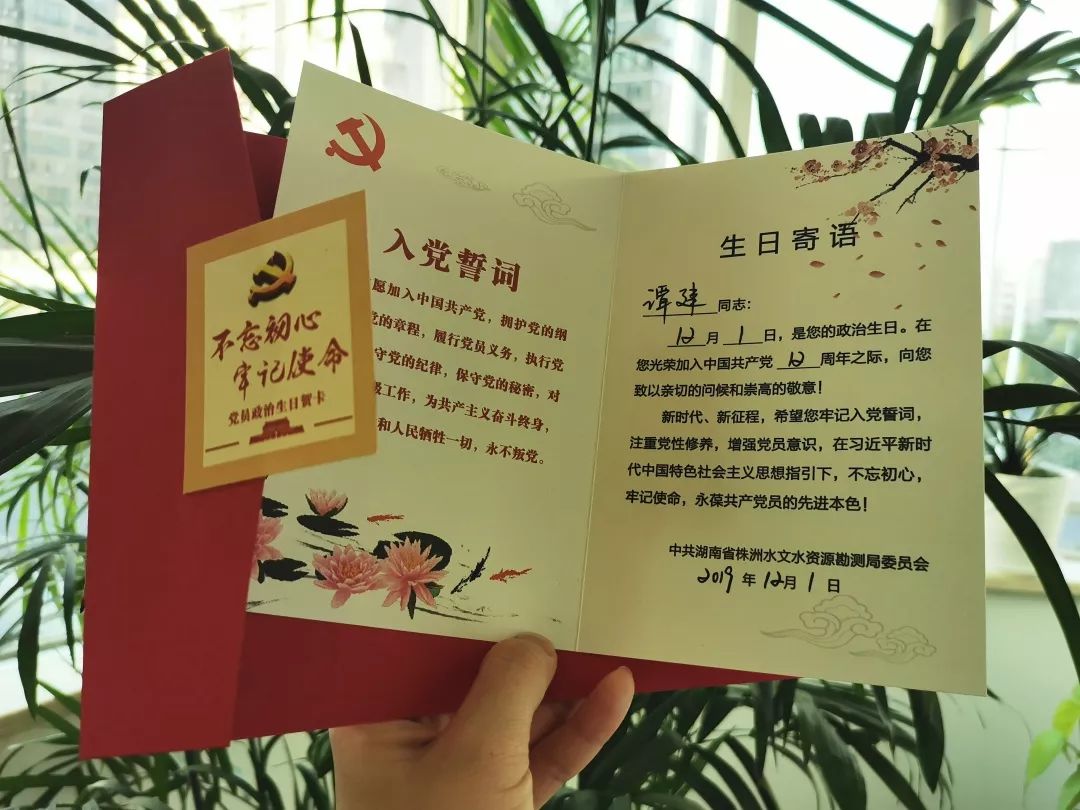 不忘初心
牢记使命
党员政治生日贺卡
入党誓词
愿加入中国共产党，拥护党的纲
党的章程，履行党员义务，执行党
守党的纪律，保守党的秘密，对
级工作，为共产主义奋斗终身，
和人民牺牲一切，永不叛党。
生日寄语
谭建同志：
12月1日，是您的政治生日。在
您光荣加入中国共产党12周年之际，向您
致以亲切的问候和崇高的敬意！
新时代、新征程，希望您牢记入党誓词，
注重党性修养，增强党员意识，在习近平新时
代中国特色社会主义思想指引下，不忘初心，
牢记使命，永葆共产党员的先进本色！
中共湖南省株洲水文水资源勘测局委员会
2019年12月1日